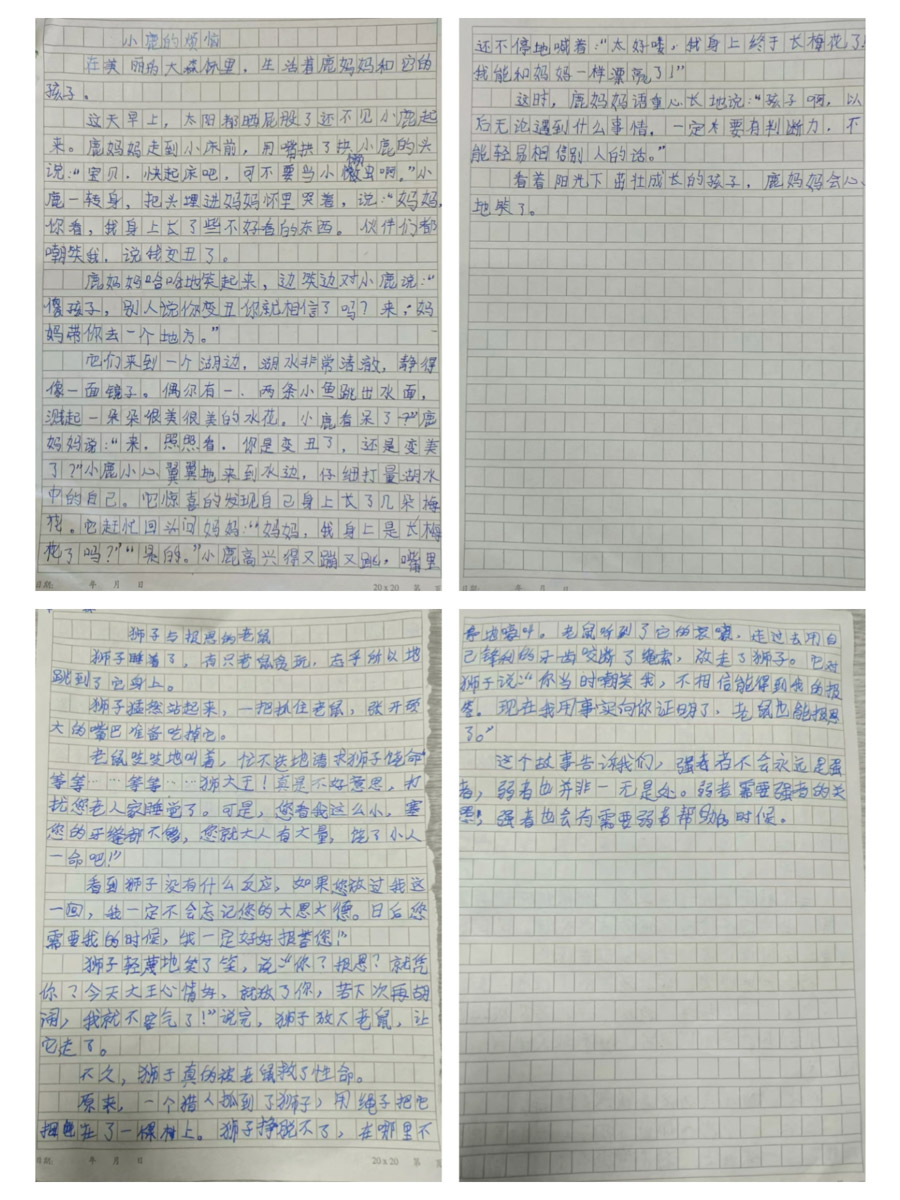 小鹿的烦恼
在美丽的大森林里，生活着鹿妈妈和它的
孩子。
这天早上，太阳都晒屁股了还不见小鹿起
来。鹿妈妈走到小床前，用嘴拱了拱小鹿的头
说：“宝贝，快起床吧，可不要当小懒虫啊。”小
鹿一转身，把头埋进妈妈怀里哭着，说：“妈妈，
你看，我身上长了些不好看的东西。伙伴们都
嘲笑我，说我变丑了。
鹿妈妈哈哈地笑起来，边笑边对小鹿说：“
傻孩子，别人说你变丑你就相信了吗？来，妈
妈带你去一个地方。”
它们来到一个湖边，湖水非常清澈，静得
像一面镜子。偶尔有一、两条小鱼跳出水面，
溅起一朵朵很美很美的水花。小鹿看呆了？”鹿
妈妈说：“来，照照看，你是变丑了，还是变美
了？”小鹿小心翼翼地来到水边，仔细打量湖水
中的自己。它惊喜的发现自己身上长了几朵梅
花。它赶忙回头问妈妈：“妈妈，我身上是长梅
花了吗？”“是的。”小鹿高兴得又蹦又跳，嘴里
日期： 年 月 日 20x20 第 页
还不停地喊着：“太好喽，我身上终于长梅花了！
我能和妈妈一样漂亮了！”
这时，鹿妈妈语重心长地说：“孩子啊，以
后无论遇到什么事情，一定要有判断力，不
能轻易相信别人的话。”
看着阳光下茁壮成长的孩子，鹿妈妈会心
地笑了。
日期： 年 月 日 20x20 第
狮子与报恩的老鼠
狮子睡着了，有只老鼠贪玩，忘乎所以地
跳到了它身上。
狮子猛然站起来，一把抓住老鼠，张开硕
大的嘴巴准备吃掉它。
老鼠吱吱地叫着，忙不迭地请求狮子饶命“
等等……等等……狮大王！真是不好意思，打
扰您老人家睡觉了。可是，您看我这么小，塞
您的牙缝都不够，您就大人有大量，饶了小人
一命吧！”
看到狮子没有什么反应，如果您放过我这
一回，我一定不会忘记您的大恩大德。日后您
需要我的时候，我一定好好报答您！”
狮子轻蔑地笑了笑，说：“你？报恩？就凭
你？今天大王心情好，就放了你，若下次再胡
闹，我就不客气了！”说完，狮子放下老鼠，让
它走了。
不久，狮子真的被老鼠救了性命。
原来，一个猎人抓到了狮子，用绳子把它
捆在了一棵树上。狮子挣脱不了，在哪里不
日期： 年 月 日 20x20 第 页
停地嚎叫。老鼠听到了它的哀嚎，走过去用自
己锋利的牙齿咬断了绳索，放走了狮子。它对
狮子说：“你当时嘲笑我，不相信能得到我的报
答。现在我用事实向你证明了，老鼠也能报恩
了。”
这个故事告诉我们，强者不会永远是强
者，弱者也并非一无是处。弱者需要强者的关
照，强者也会有需要弱者帮助的时候。